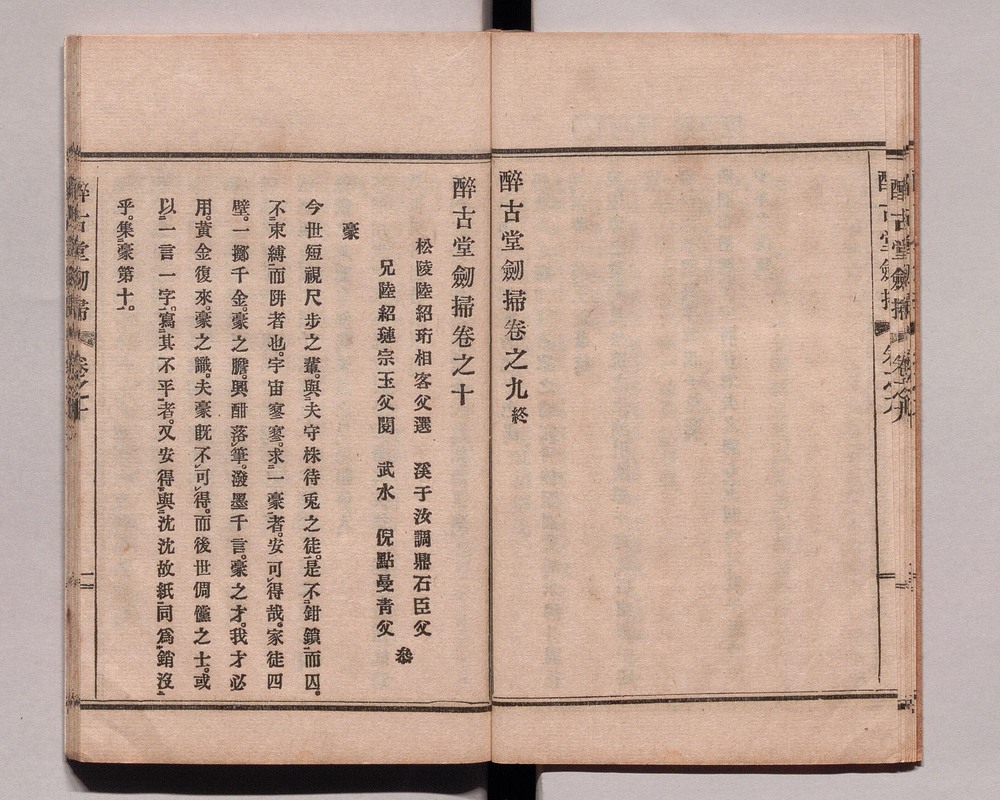 醉古堂劒掃卷之九終
醉古堂劒掃卷之十
松陵陸紹珩相客父選　溪于汝調鼎石臣父
兄陸紹璉宗玉父閱　武水　倪點曼青父
叅
豪
今世短視尺步之輩。與夫守株待兎之徒。是不鉗鎖而囚。
不束縛而阱者也。宇宙寥寥。求一豪者。安可得哉。家徒四
壁。一擲千金。豪之膽。興酣落筆。潑墨千言。豪之才。我才必
用。黃金復來。豪之識。夫豪旣不可得。而後世倜儻之士。或
以一言一字。寫其不平者。又安得與沈沈故紙同爲銷沒
乎。集豪第十。
醉古堂劒掃
卷之十